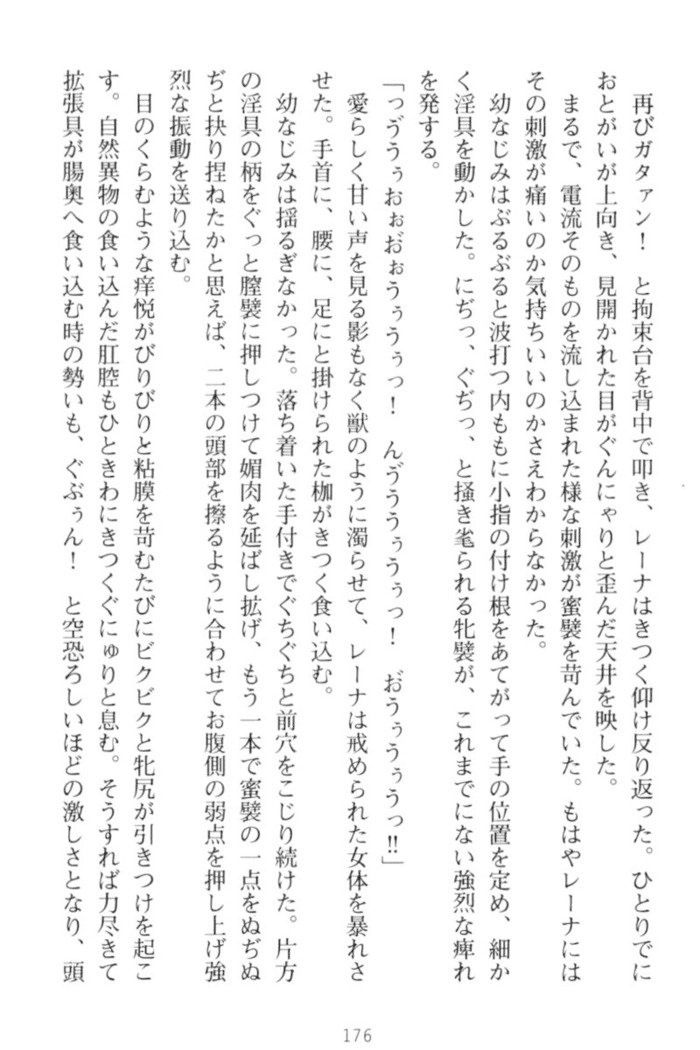 再びガタァン！　と拘束台を背中で叩き、レーナはきつく仰け反り返った。ひとりでに
おとがいが上向き、見開かれた目がぐんにゃりと歪んだ天井を映した。
まるで、電流そのものを流し込まれた様な刺激が蜜襞を苛んでいた。もはやレーナには
その刺激が痛いのか気持ちいいのかさえわからなかった。
幼なじみはぶるぶると波打つ内ももに小指の付け根をあてがって手の位置を定め、細か
く淫具を動かした。にぢっ、ぐぢっ、と掻き毟られる牝襞が、これまでにない強烈な痺れ
を発する。
「っゔうぅおぉお゙ぉうぅうぅっ！　んゔううぅうぅっ！　お゙うぅうぅうっ‼」
愛らしく甘い声を見る影もなく獣のように濁らせて、レーナは戒められた女体を暴れさ
せた。手首に、腰に、足にと掛けられた枷がきつく食い込む。
幼なじみは揺るぎなかった。落ち着いた手付きでぐちぐちと前穴をこじり続けた。片方
の淫具の柄をぐっと膣襞に押しつけて媚肉を延ばし拡げ、もう一本で蜜襞の一点をぬぢぬ
ぢと抉り捏ねたかと思えば、二本の頭部を擦るように合わせてお腹側の弱点を押し上げ強
烈な振動を送り込む。
目のくらむような痒悦がびりびりと粘膜を苛むたびにビクビクと牝尻が引きつけを起こ
す。自然異物の食い込んだ肛腔もひときわにきつくぐにゅりと息む。そうすれば力尽きて
拡張具が腸奥へ食い込む時の勢いも、ぐぶぅん！　と空恐ろしいほどの激しさとなり、頭
176